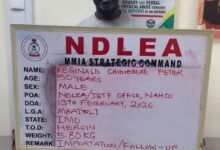 NDLEA
MMIA STRATEGIC COMMAND
NAME: REGINALD CHIDIEBERE PETER
AGE: 50YEARS
SEX: MALE
P.O.A: NDLEA/JBTF OFFICE, NAHCO
DOA: 13TH FEBRUARY, 2026
LGA: MBAITOLI
STATE: IMO
T.O.D: HEROIN
WEIGHT: 5.80KG
REMARK: IMPORTATION/FOLLOW-UP